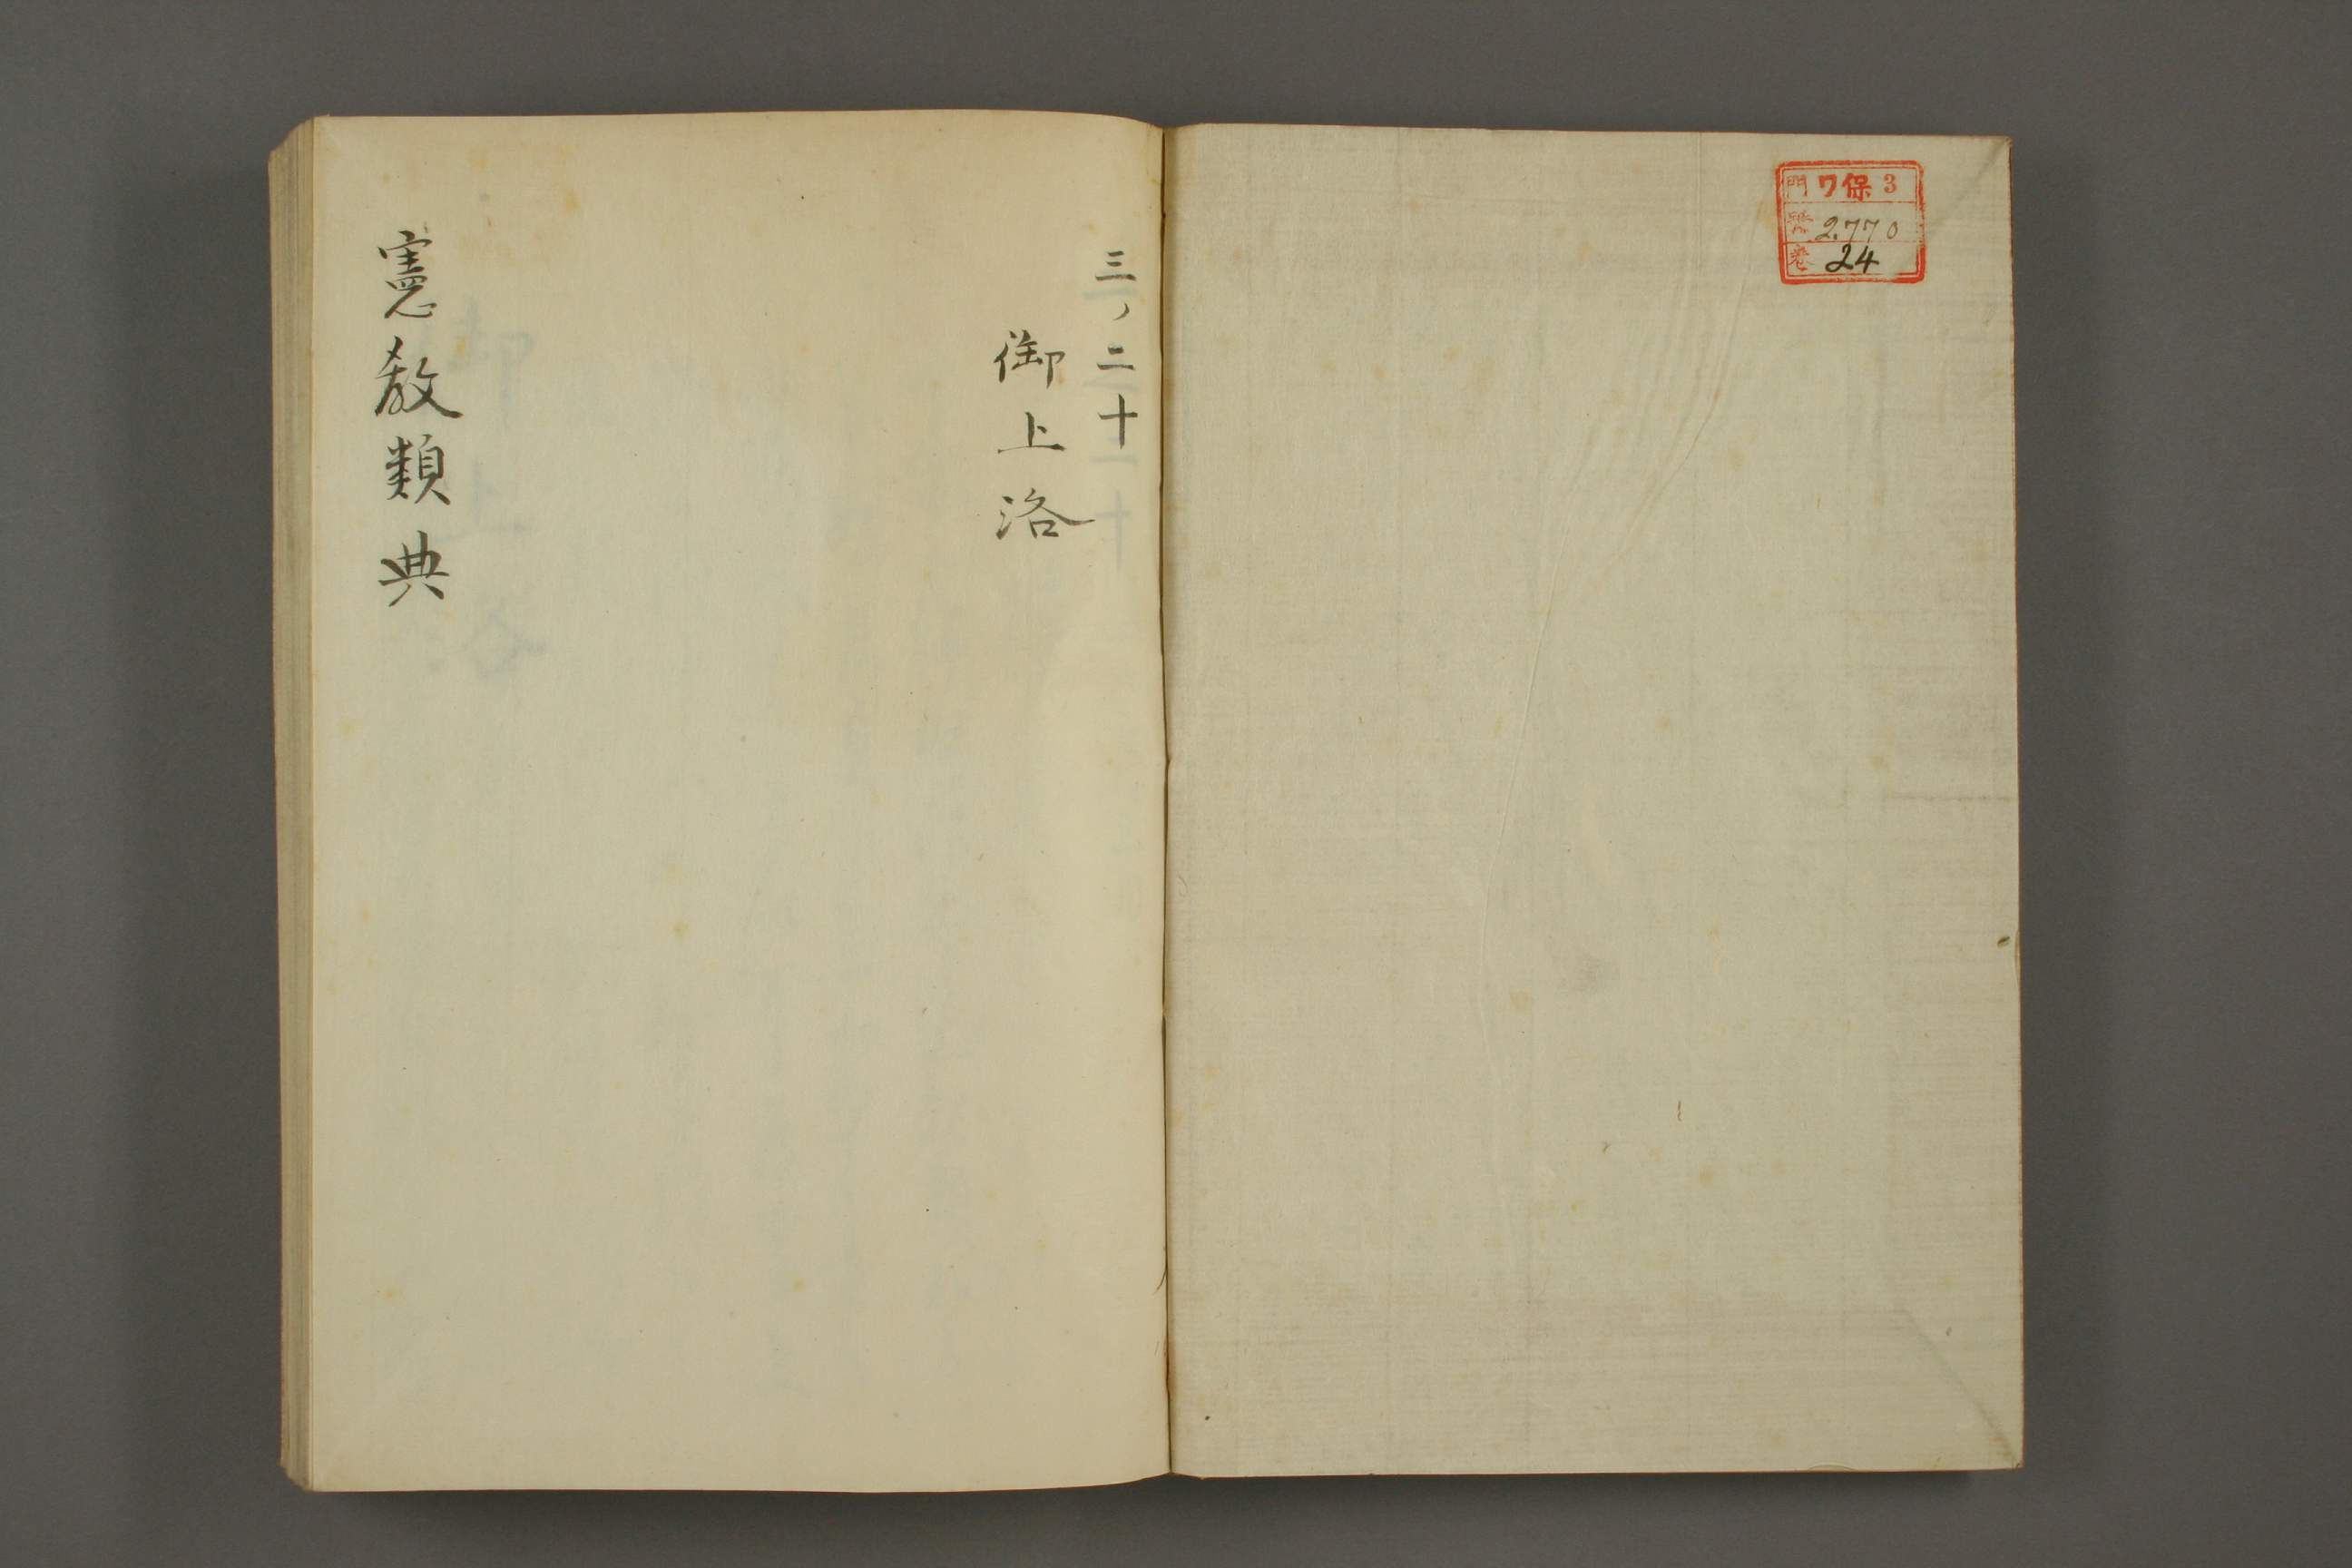 門 ワ保 3
號 2.770
卷 24
三ノ二十
御上洛
憲教類典